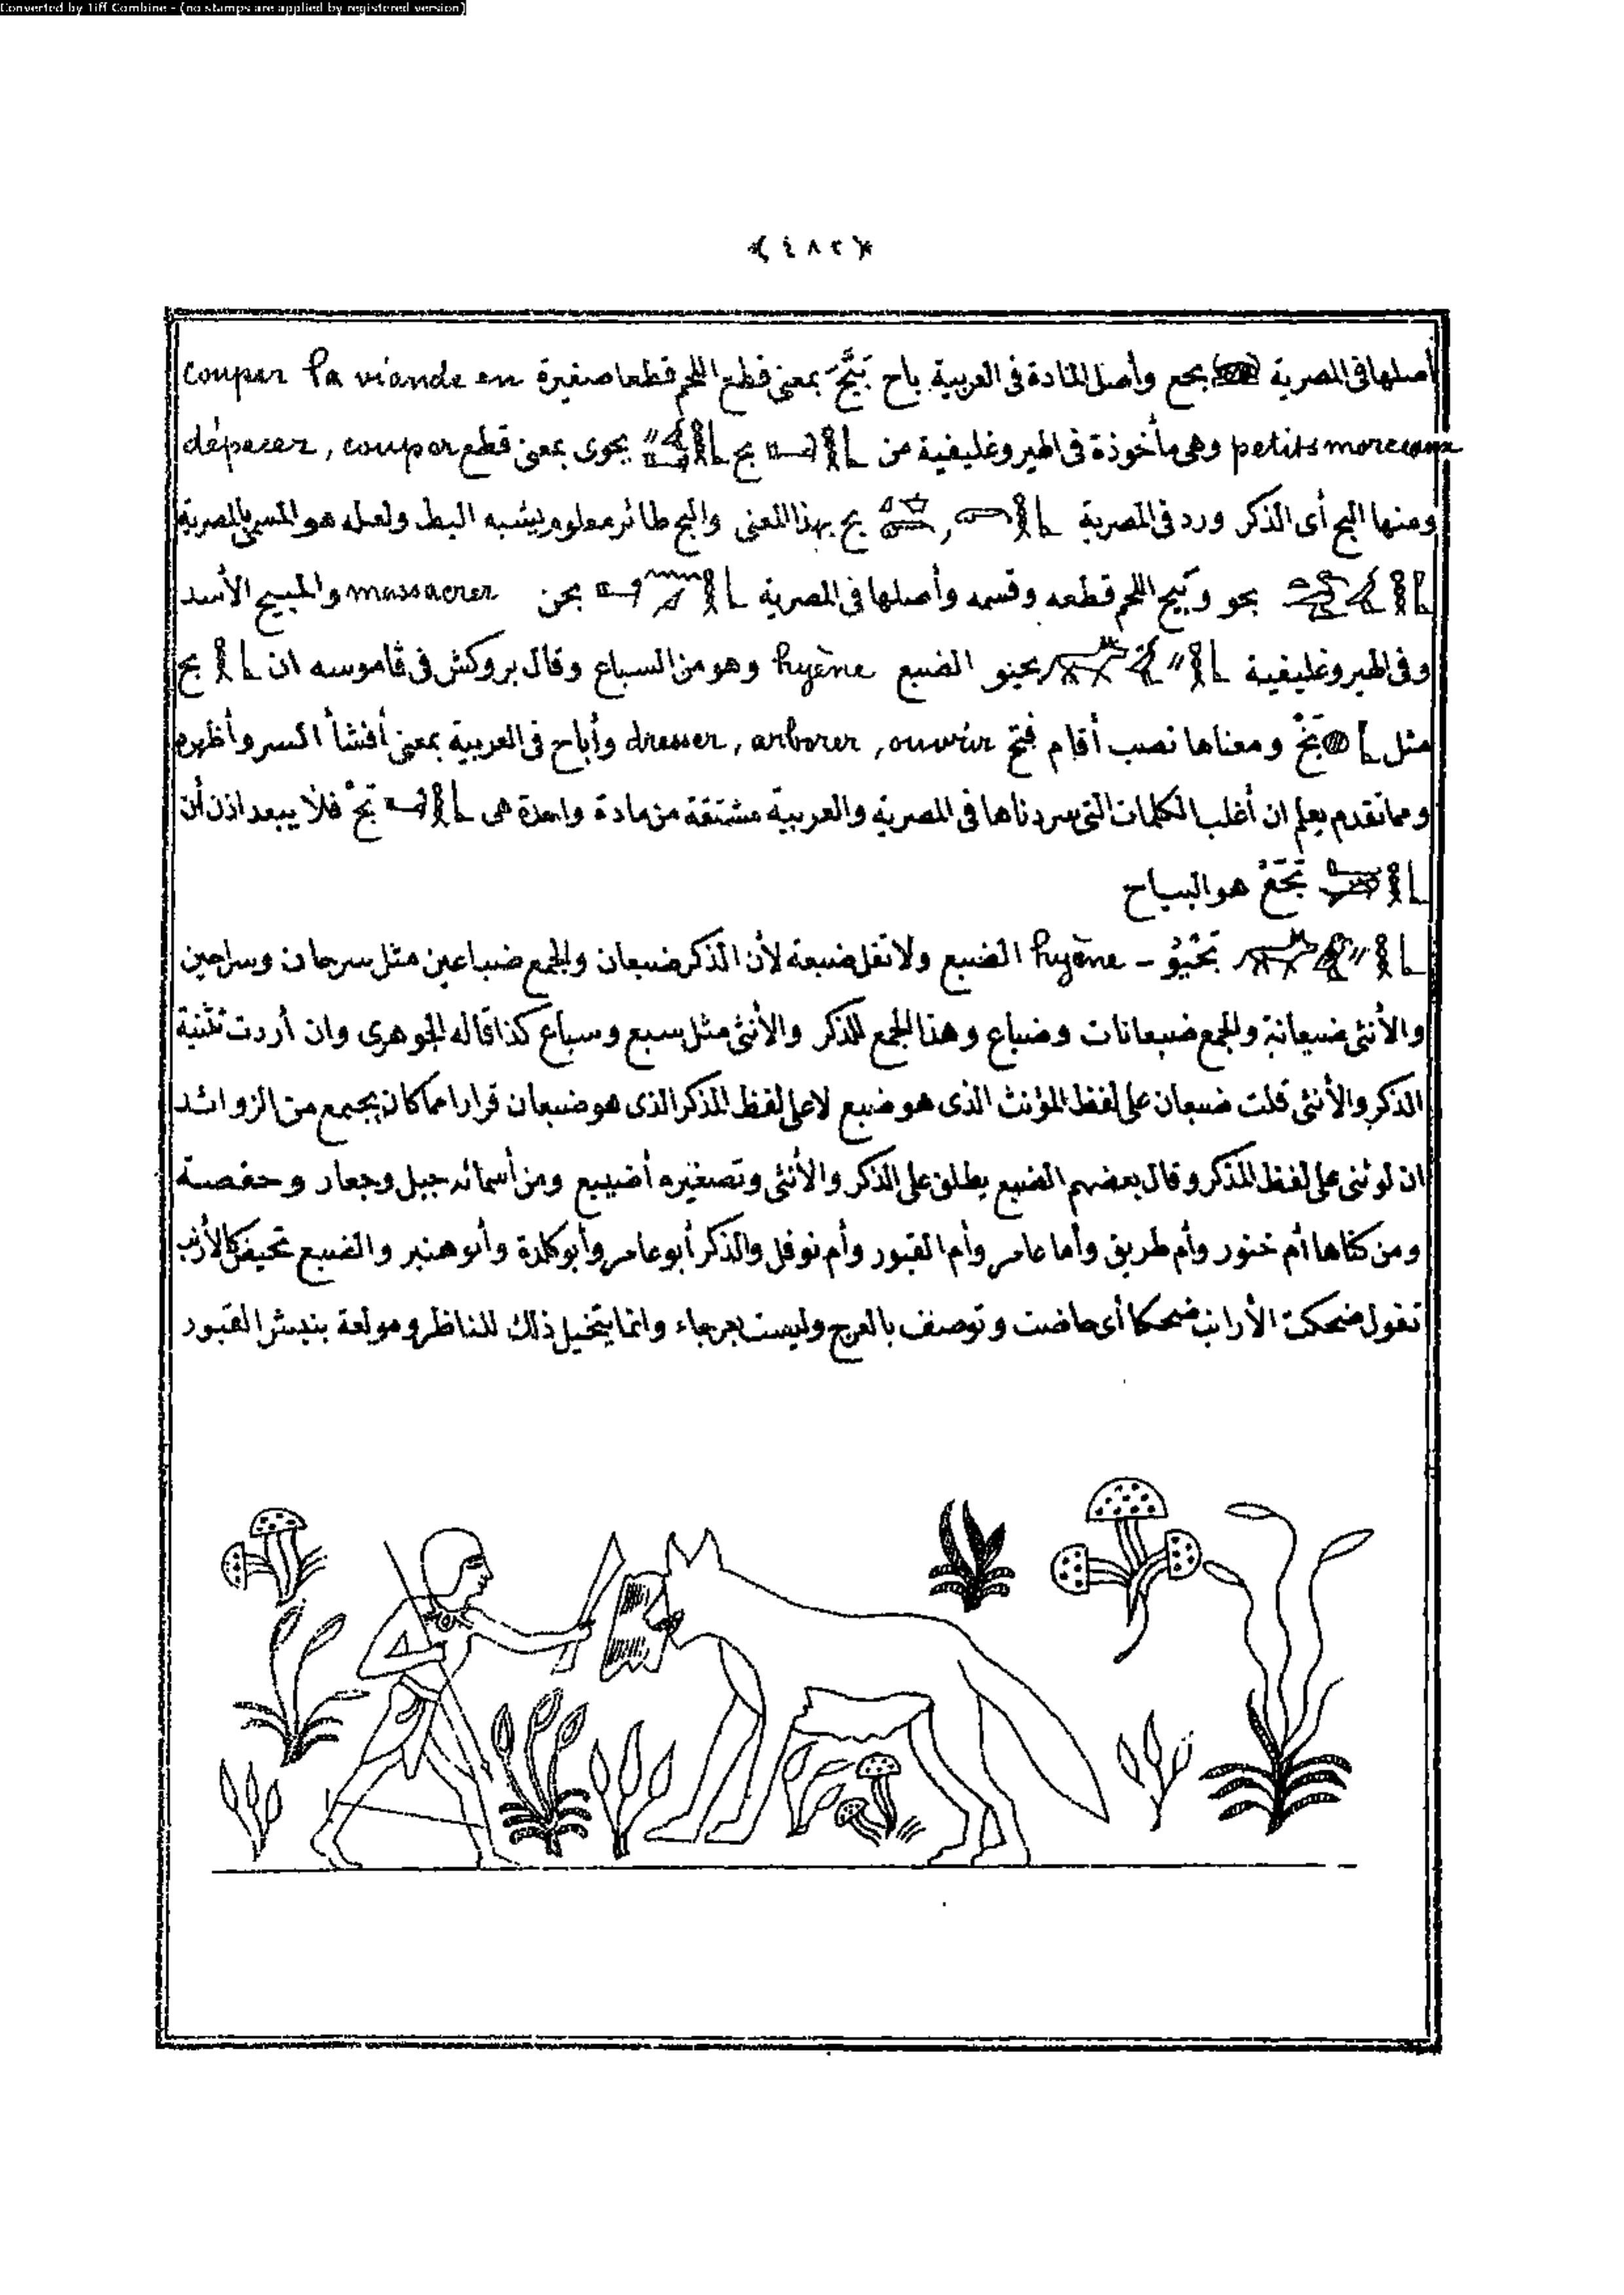 Converted by Tiff Combine - (no stamps are applied by registered version)
﴿٤٨٢﴾
أصلها فى المصرية بحع وأصل المادة فى العربية باح بَيَّحَ بمعنى قطع اللحم قطعا صغيرة couper la viande en
petits morceaux وهى مأخوذة فى الهيروغليفية من بح بحوى بمعنى قطع dépecer, couper
ومنها البح أى الذكر ورد فى المصرية بح بهذا المعنى والبح طائر معلوم يشبه البط ولعله هو المسمى بالمصرية
بحو وبيح اللحم قطعه وقسمه وأصلها فى المصرية بحن massacrer والمبيح الأسد
وفى الهيروغليفية بحيو الضبع hyène وهو من السباع وقال بروكش فى قاموسه ان بح
مثل بَخْ ومعناها نصب أقام فتح dresser, arborer, ouvrir وأباح فى العربية بمعنى أفشأ السر وأظهره
ومما تقدم يعلم ان أغلب الكلمات التى سردناها فى المصرية والعربية مشتقة من مادة واحدة هى بَحْ فلا يبعد اذن أن
هو البياح
بَحْيُو - hyène الضبع ولا تقل ضبعة لأن الذكر ضبعان والجمع ضباعين مثل سرحان وسراحين
والأنثى ضبعانة والجمع ضبعانات وضباع وهذا الجمع للذكر والأنثى مثل سبع وسباع كذا قاله الجوهرى وان أردت تثنية
الذكر والأنثى قلت ضبعان على لفظ المؤنث الذى هو ضبع لا على لفظ المذكر الذى هو ضبعان فرارا مما كان يجتمع من الزوائد
ان لو ثنى على لفظ المذكر وقال بعضهم الضبع يطلق على الذكر والأنثى وتصغيره أضيبع ومن أسمائه جيل وجعار وحفصة
ومن كناها أم خنور وأم طريق وأما عامر وأم القبور وأم نوفل والذكر أبو عامر وأبو كلدة وأبو هنبر والضبع تحيض كالأرنب
تقول ضحكت الأرانب ضحكا أى حاضت وتوصف بالعرج وليست بعرجاء وانما يتخيل ذلك للناظر ومولعة بنبش القبور